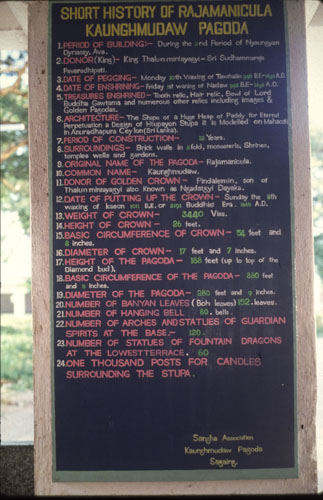 SHORT HISTORY OF RAJAMANICULA
KAUNGHMUDAW PAGODA
1.PERIOD OF BUILDING:- During the 2nd Period of Nyaungyan
Dynasty, Ava.
2.DONOR(King)- King Thalun mintayagyi- Sri Sudhammaraja
Pavaradhipati.
3.DATE OF PEGGING- Monday Waxing of Tawthalin B.E- A.D.
4.DATE OF ENSHRINING- Friday of waning of Nadaw B.E- A.D.
5.TREASURES ENSHRINED- Tooth relic, Hair relic, Bowl of Lord
Buddha Gawtama and numerous other relics including images &
Golden Pagodas.
6.ARCHITECTURE- The Shape of a Huge Heap of Paddy for Eternal
Perpetuation a Design of Htupayon Stupa it is Modelled on Mahaceti
in Anuradhapura Ceylon(Sri Lanka).
7.PERIOD OF CONSTRUCTION- Years.
8.SURROUNDINGS- Brick walls in fold, monasteris, Shrines,
temples wells and gardens.
9.ORIGINAL NAME OF THE PAGODA- Rajamanicula.
10.COMMON NAME- Kaunghmudaw.
11.DONOR OF GOLDEN CROWN- Pindalemin, son of
Thalun mintayagyi also known as Ngadatgyi Dayaka.
12.DATE OF PUTTING UP THE CROWN- Sunday the
waxing of kason B.E. or Buddhist Era. A.D.
13.WEIGHT OF CROWN- 3440 Viss.
14.HEIGHT OF CROWN- 26 feet.
15.BASIC CIRCUMFERENCE OF CROWN- feet and
8 inches.
16.DIAMETER OF CROWN- 17 feet and 7 inches.
17.HEIGHT OF THE PAGODA- 158 feet (up to top of the
Diamond bud).
18.BASIC CIRCUMFERENCE OF THE PAGODA- 880 feet
and inches.
19.DIAMETER OF THE PAGODA- 280 feet and 9 inches.
20.NUMBER OF BANYAN LEAVES (Boh leaves) 152. leaves.
21.NUMBER OF HANGING BELL 80. bells.
22.NUMBER OF ARCHES AND STATUES OF GUARDIAN
SPIRITS AT THE BASE:- 120.
23.NUMBER OF STATUES OF FOUNTAIN DRAGONS
AT THE LOWEST TERRACE. 60
24.ONE THOUSAND POSTS FOR CANDLES
SURROUNDING THE STUPA.
Sangha Association
Kaunghmudaw Pagoda
Sagaing.